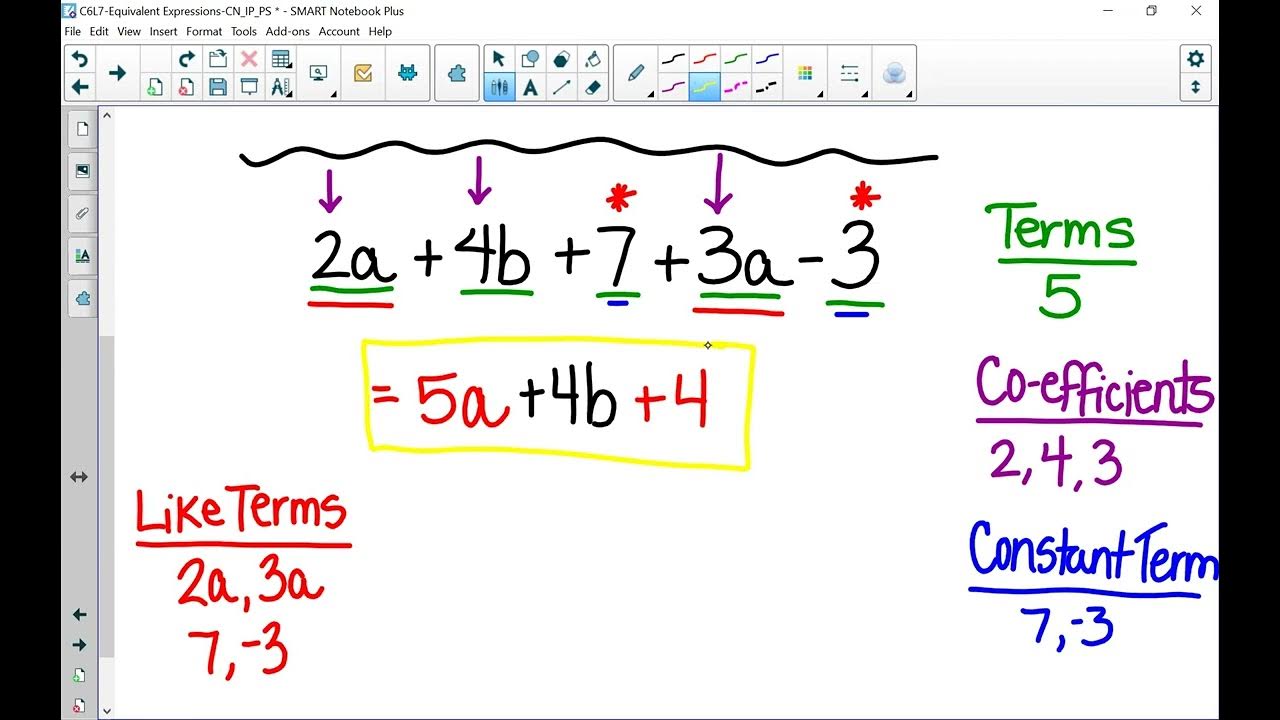 C6L7-Equivalent Expressions-CN_IP_PS * - SMART Notebook Plus
File Edit View Insert Format Tools Add-ons Account Help
2a + 4b + 7 + 3a - 3
= 5a + 4b + 4
Terms
5
Co-efficients
2, 4, 3
Constant Term
7, -3
Like Terms
2a, 3a
7, -3